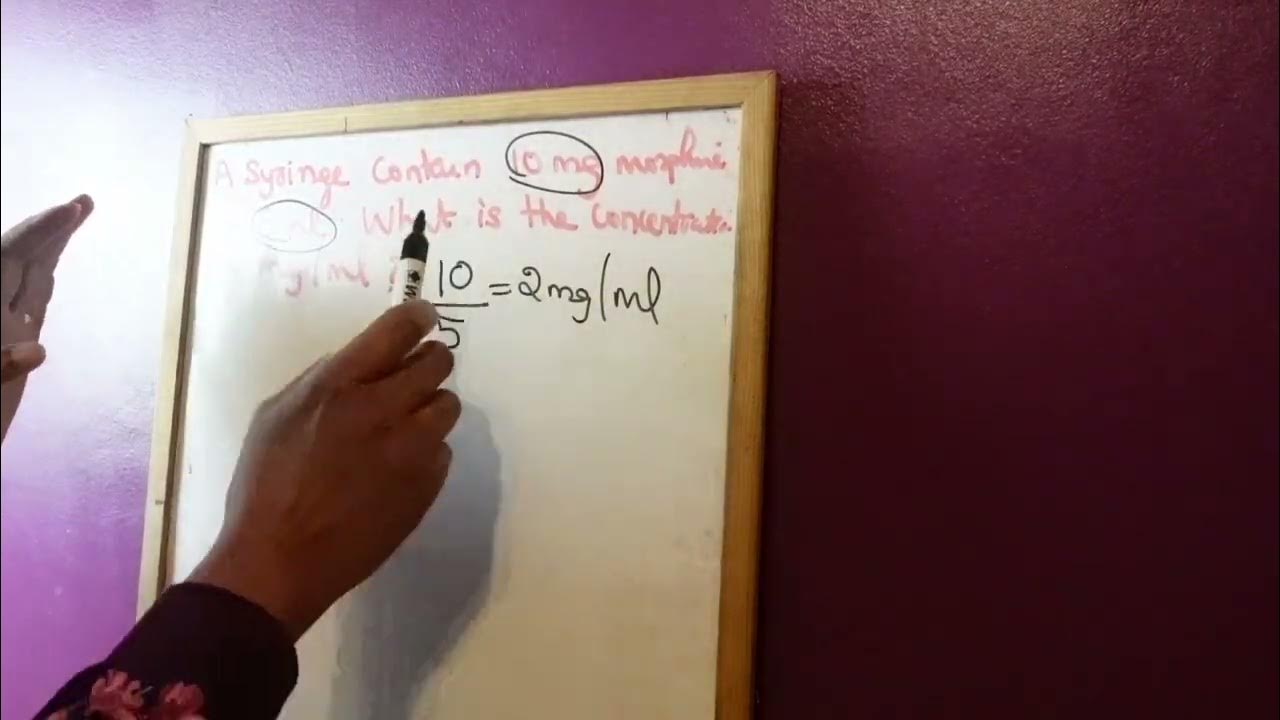 A Syringe Contain 10 mg morphine
ml. What is the Concentration
mg/ml ?
10
5
= 2mg/ml